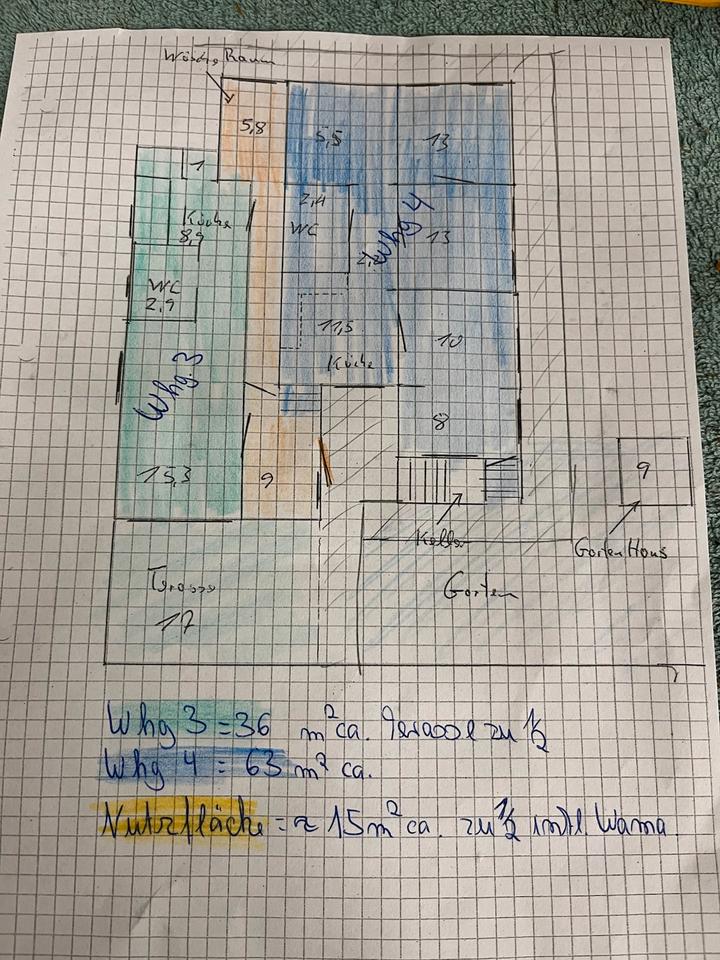 Wäsche Raum
5,8
5,5
13
1
Küche
8,9
2,4
WC
Whg 4
13
WC
2,9
11,5
Küche
10
Whg. 3
8
15,3
9
9
Keller
Garten Haus
Terasse
17
Garten
Whg 3 = 36 m² ca. Terasse zu ½
Whg 4 = 63 m² ca.
Nutzfläche = ≈ 15 m² ca. zu ½ inkl. Wama